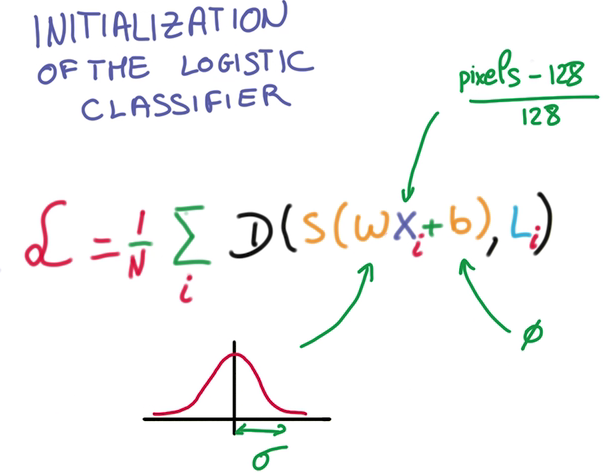 INITIALIZATION
OF THE LOGISTIC
CLASSIFIER
pixels - 128
128
ℒ = 1/N Σ_i D(S(WX_i+b), L_i)
φ
σ